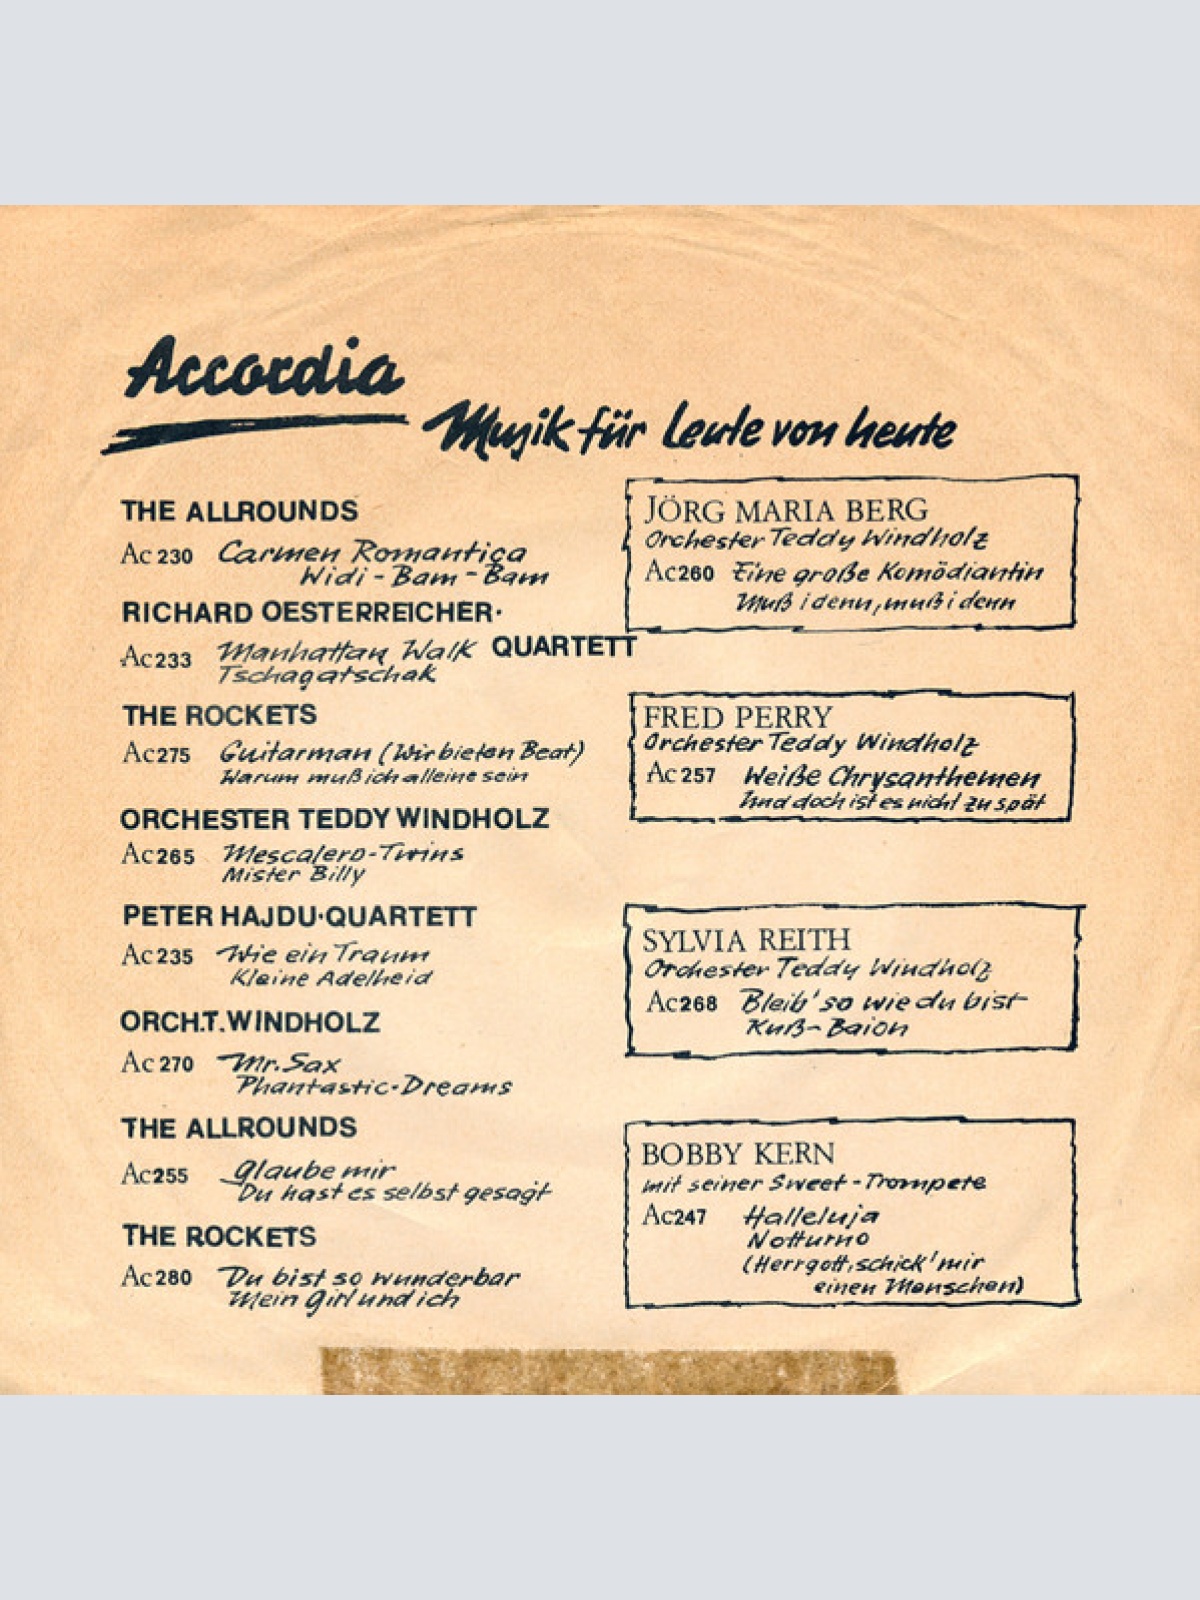 Accordia
Musik für Leute von heute
THE ALLROUNDS
Ac 230 Carmen Romantica
Widi - Bam - Bam
RICHARD OESTERREICHER·
QUARTETT
Ac 233 Manhattan Walk
Tschagatschak
THE ROCKETS
Ac 275 Guitarman (Wir bieten Beat)
Warum muß ich alleine sein
ORCHESTER TEDDY WINDHOLZ
Ac 265 Mescalero-Twins
Mister Billy
PETER HAJDU·QUARTETT
Ac 235 Wie ein Traum
Kleine Adelheid
ORCH.T.WINDHOLZ
Ac 270 Mr. Sax
Phantastic-Dreams
THE ALLROUNDS
Ac 255 Glaube mir
Du hast es selbst gesagt
THE ROCKETS
Ac 280 Du bist so wunderbar
Mein Girl und ich
JÖRG MARIA BERG
Orchester Teddy Windholz
Ac 260 Eine große Komödiantin
Muß i denn, muß i denn
FRED PERRY
Orchester Teddy Windholz
Ac 257 Weiße Chrysanthemen
Und doch ist es nicht zu spät
SYLVIA REITH
Orchester Teddy Windholz
Ac 268 Bleib' so wie du bist
Kuß-Baion
BOBBY KERN
mit seiner Sweet-Trompete
Ac 247 Halleluja
Notturno
(Herrgott, schick' mir
einen Menschen)